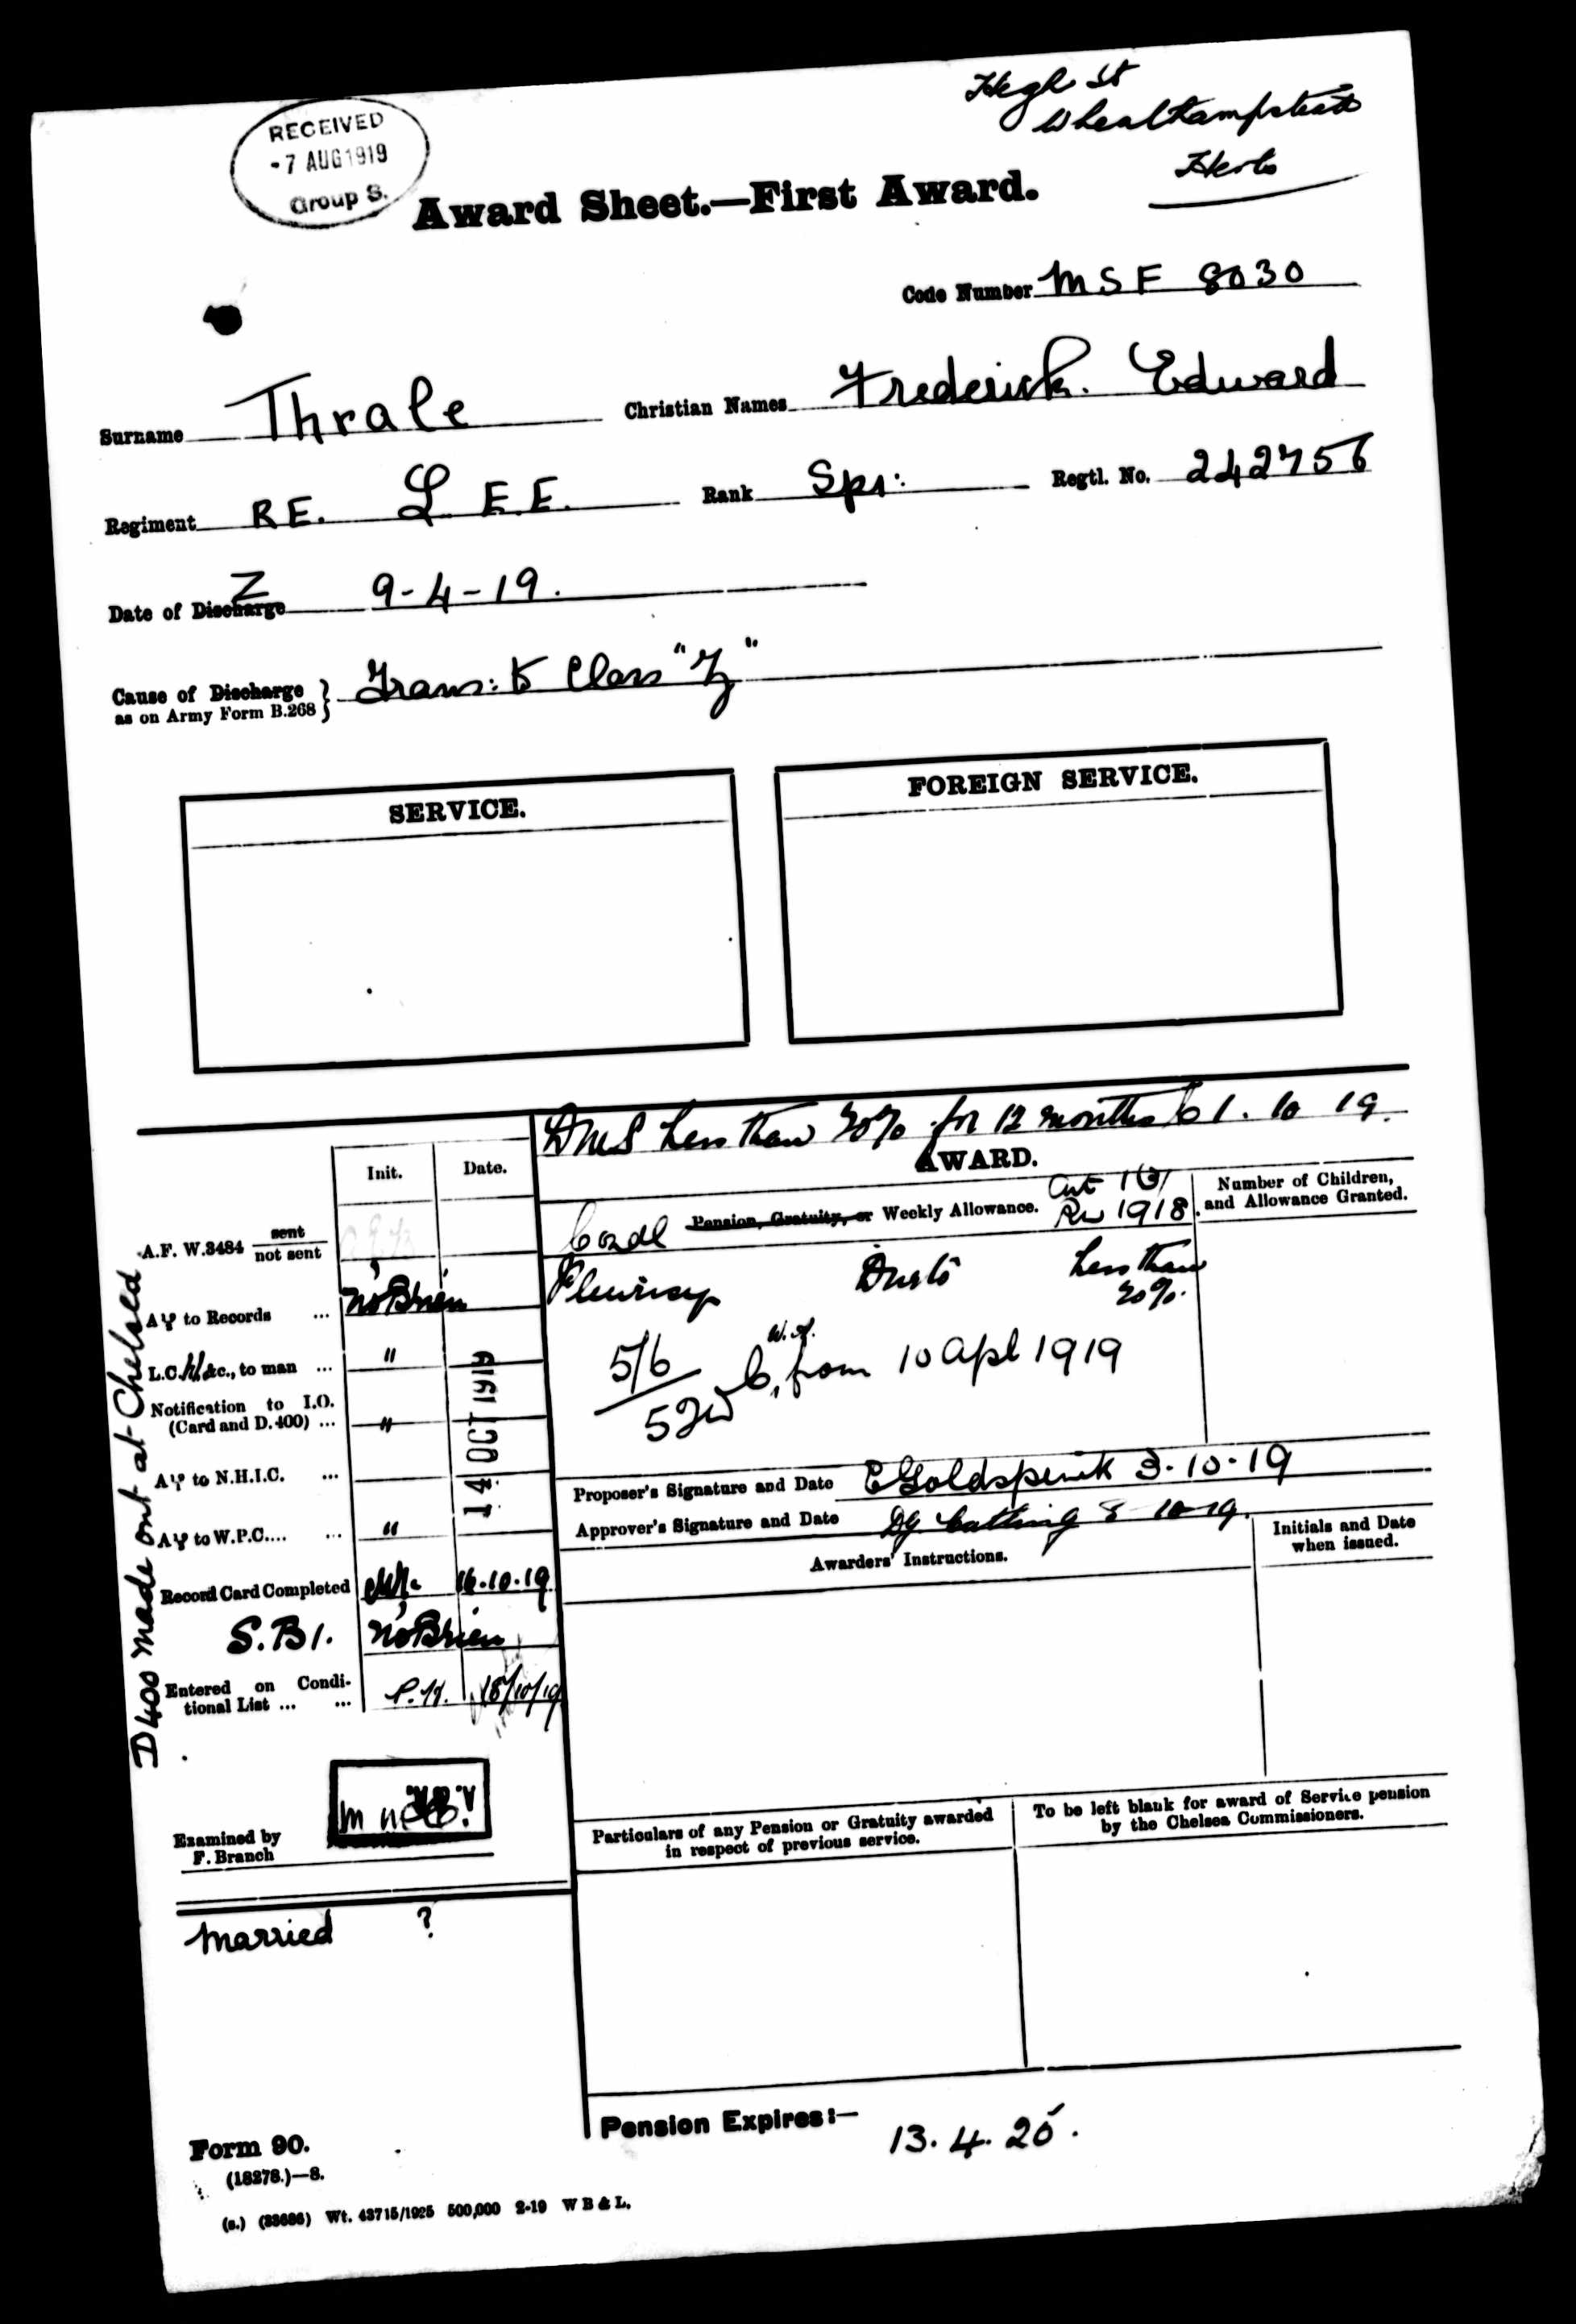 High St
Wheathampstead
Herts
RECEIVED
-7 AUG 1919
Group S.
Award Sheet.—First Award.
Code Number MSF 8030
Surname Thrale Christian Names Frederick. Edward
Regiment RE. L E.E. Rank Spr: Regtl. No. 242756
Z
Date of Discharge 9-4-19.
Cause of Discharge } Trans: to Class "Z"
as on Army Form B.268
SERVICE.
FOREIGN SERVICE.
DMS Less than 20% for 12 months to 1.10 19.
AWARD.
Init. Date.
Condl Pension, Gratuity, or Weekly Allowance. Art 1(3) RW 1918.
Number of Children,
and Allowance Granted.
A.F. W.3484 sent
not sent
Pleurisy Due to Less than
20%.
A to Records ... N. O'Brien
L.C. &c., to man ... "
5/6 W.A. from 10 Apl 1919
52w
Notification to I.O.
(Card and D.400) ... "
14 OCT 1919
A to N.H.I.C. ...
A to W.P.C.... ... "
Proposer's Signature and Date E Goldspink 3-10-19
Approver's Signature and Date DG Catling 8-10-19.
Awarders' Instructions.
Initials and Date
when issued.
Record Card Completed 16.10.19
S.B1. N. O'Brien
Entered on Condi-
tional List ... ... P.H. 18/10/19
D400 made out at Chelsea
Examined by
F. Branch
Particulars of any Pension or Gratuity awarded
in respect of previous service.
To be left blank for award of Service pension
by the Chelsea Commissioners.
Married ?
Pension Expires:— 13.4.20.
Form 90.
(18278.)—8.
(s.) (33686) Wt. 43715/1925 500,000 2-19 W B & L.